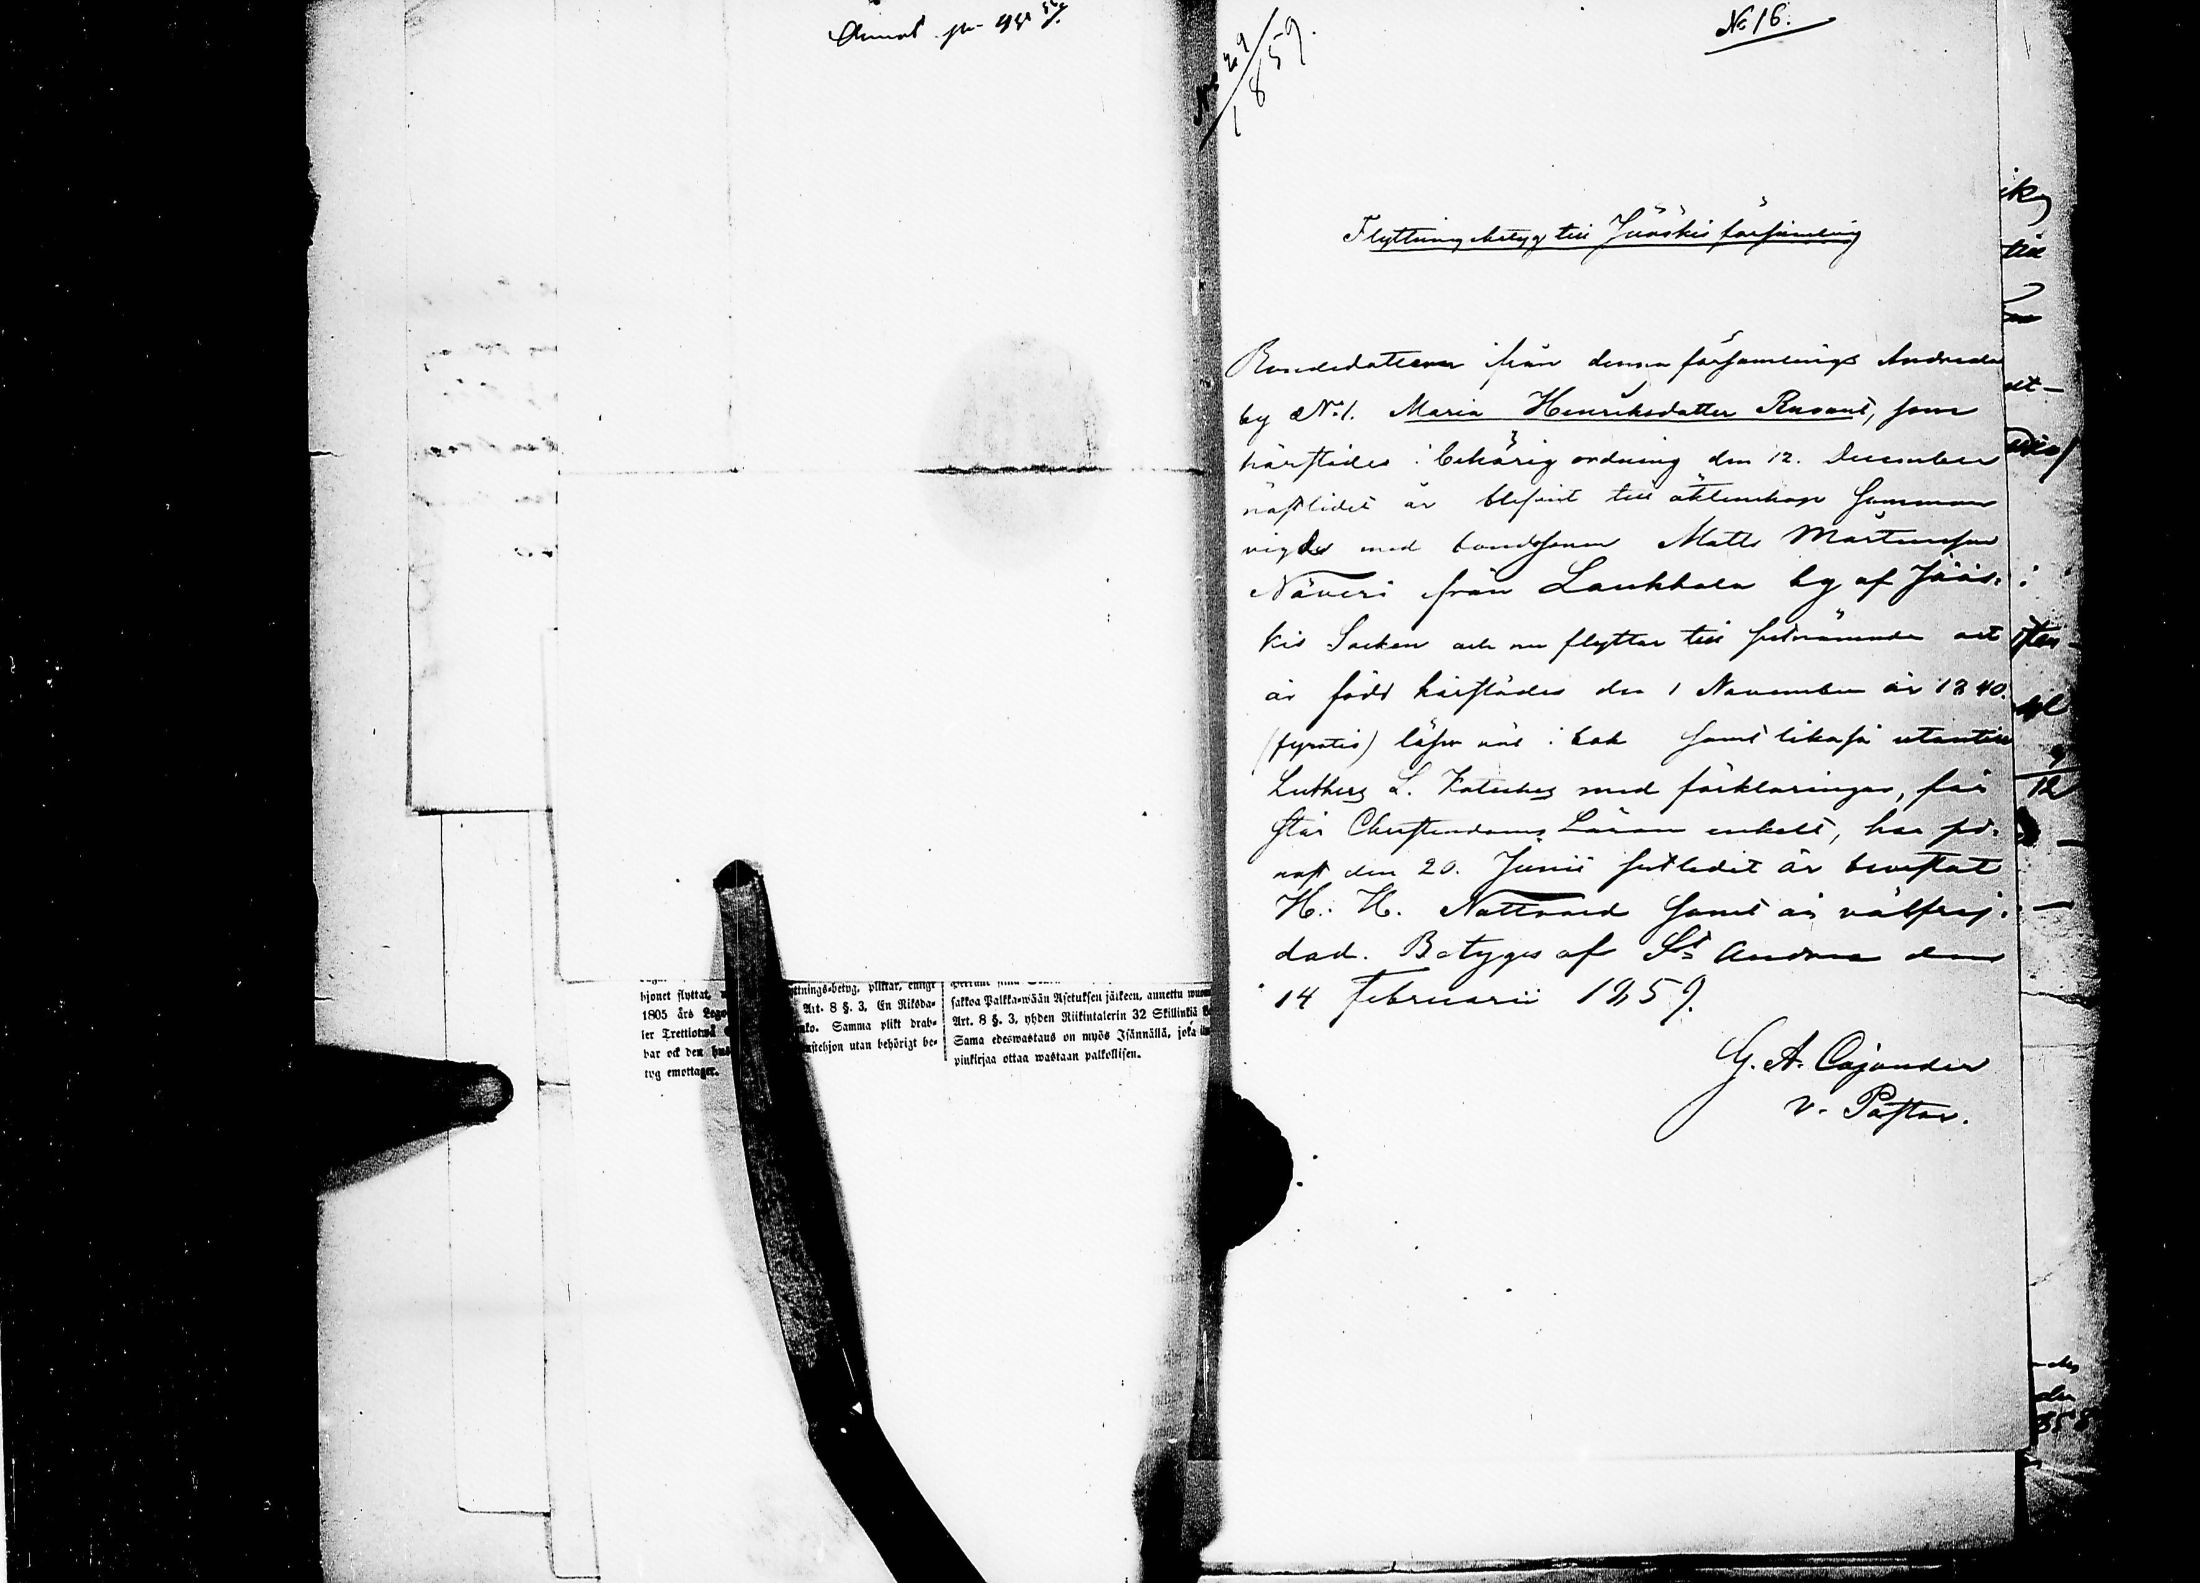 No 29/1859.
No 16.
Flyttningsbetyg till Jääskis församling
Bondedottren från denna församlings Andreala
by No 1. Maria Henriksdotter Ravant, som
härstädes i behörig ordning den 12. December
nästlidit år blifvit till äktenskap samman
vigde med bondesonen Matts Mårtensson
Näveri från Laukkala by af Jääs-
kis Socken och nu flyttar till sistnämnde ort
är född härstädes den 1 November år 1840.
(fyratio) läser väl i bok samt likaså utantill
Luthers L. Kateches med förklaringar, för
står Christendoms Läran enkelt, har sed-
nast den 20. Junii sistledit år bevistat
H. H. Nattvard samt är välfrej-
dad. Betygas af St Andrea den
14 Februarii 1859.
G. A. Cajander
v. Pastor.
hjonet flyttat,
ttnings-betyg, pliktar, enligt
1805 års Lego
Art. 8 §. 3, En Riksda-
ler Trettiotwå
nko. Samma plikt drab-
bar ock den hus
nstehjon utan behörigt be-
tyg emottager.
sakkoa Palkka-wään Asetuksen jälkeen, annettu wuon
Art. 8 §. 3, yhden Riikintalerin 32 Skillinkiä
Sama edeswastaus on myös Isännällä, joka
pinkirjaa ottaa wastaan palkollisen.